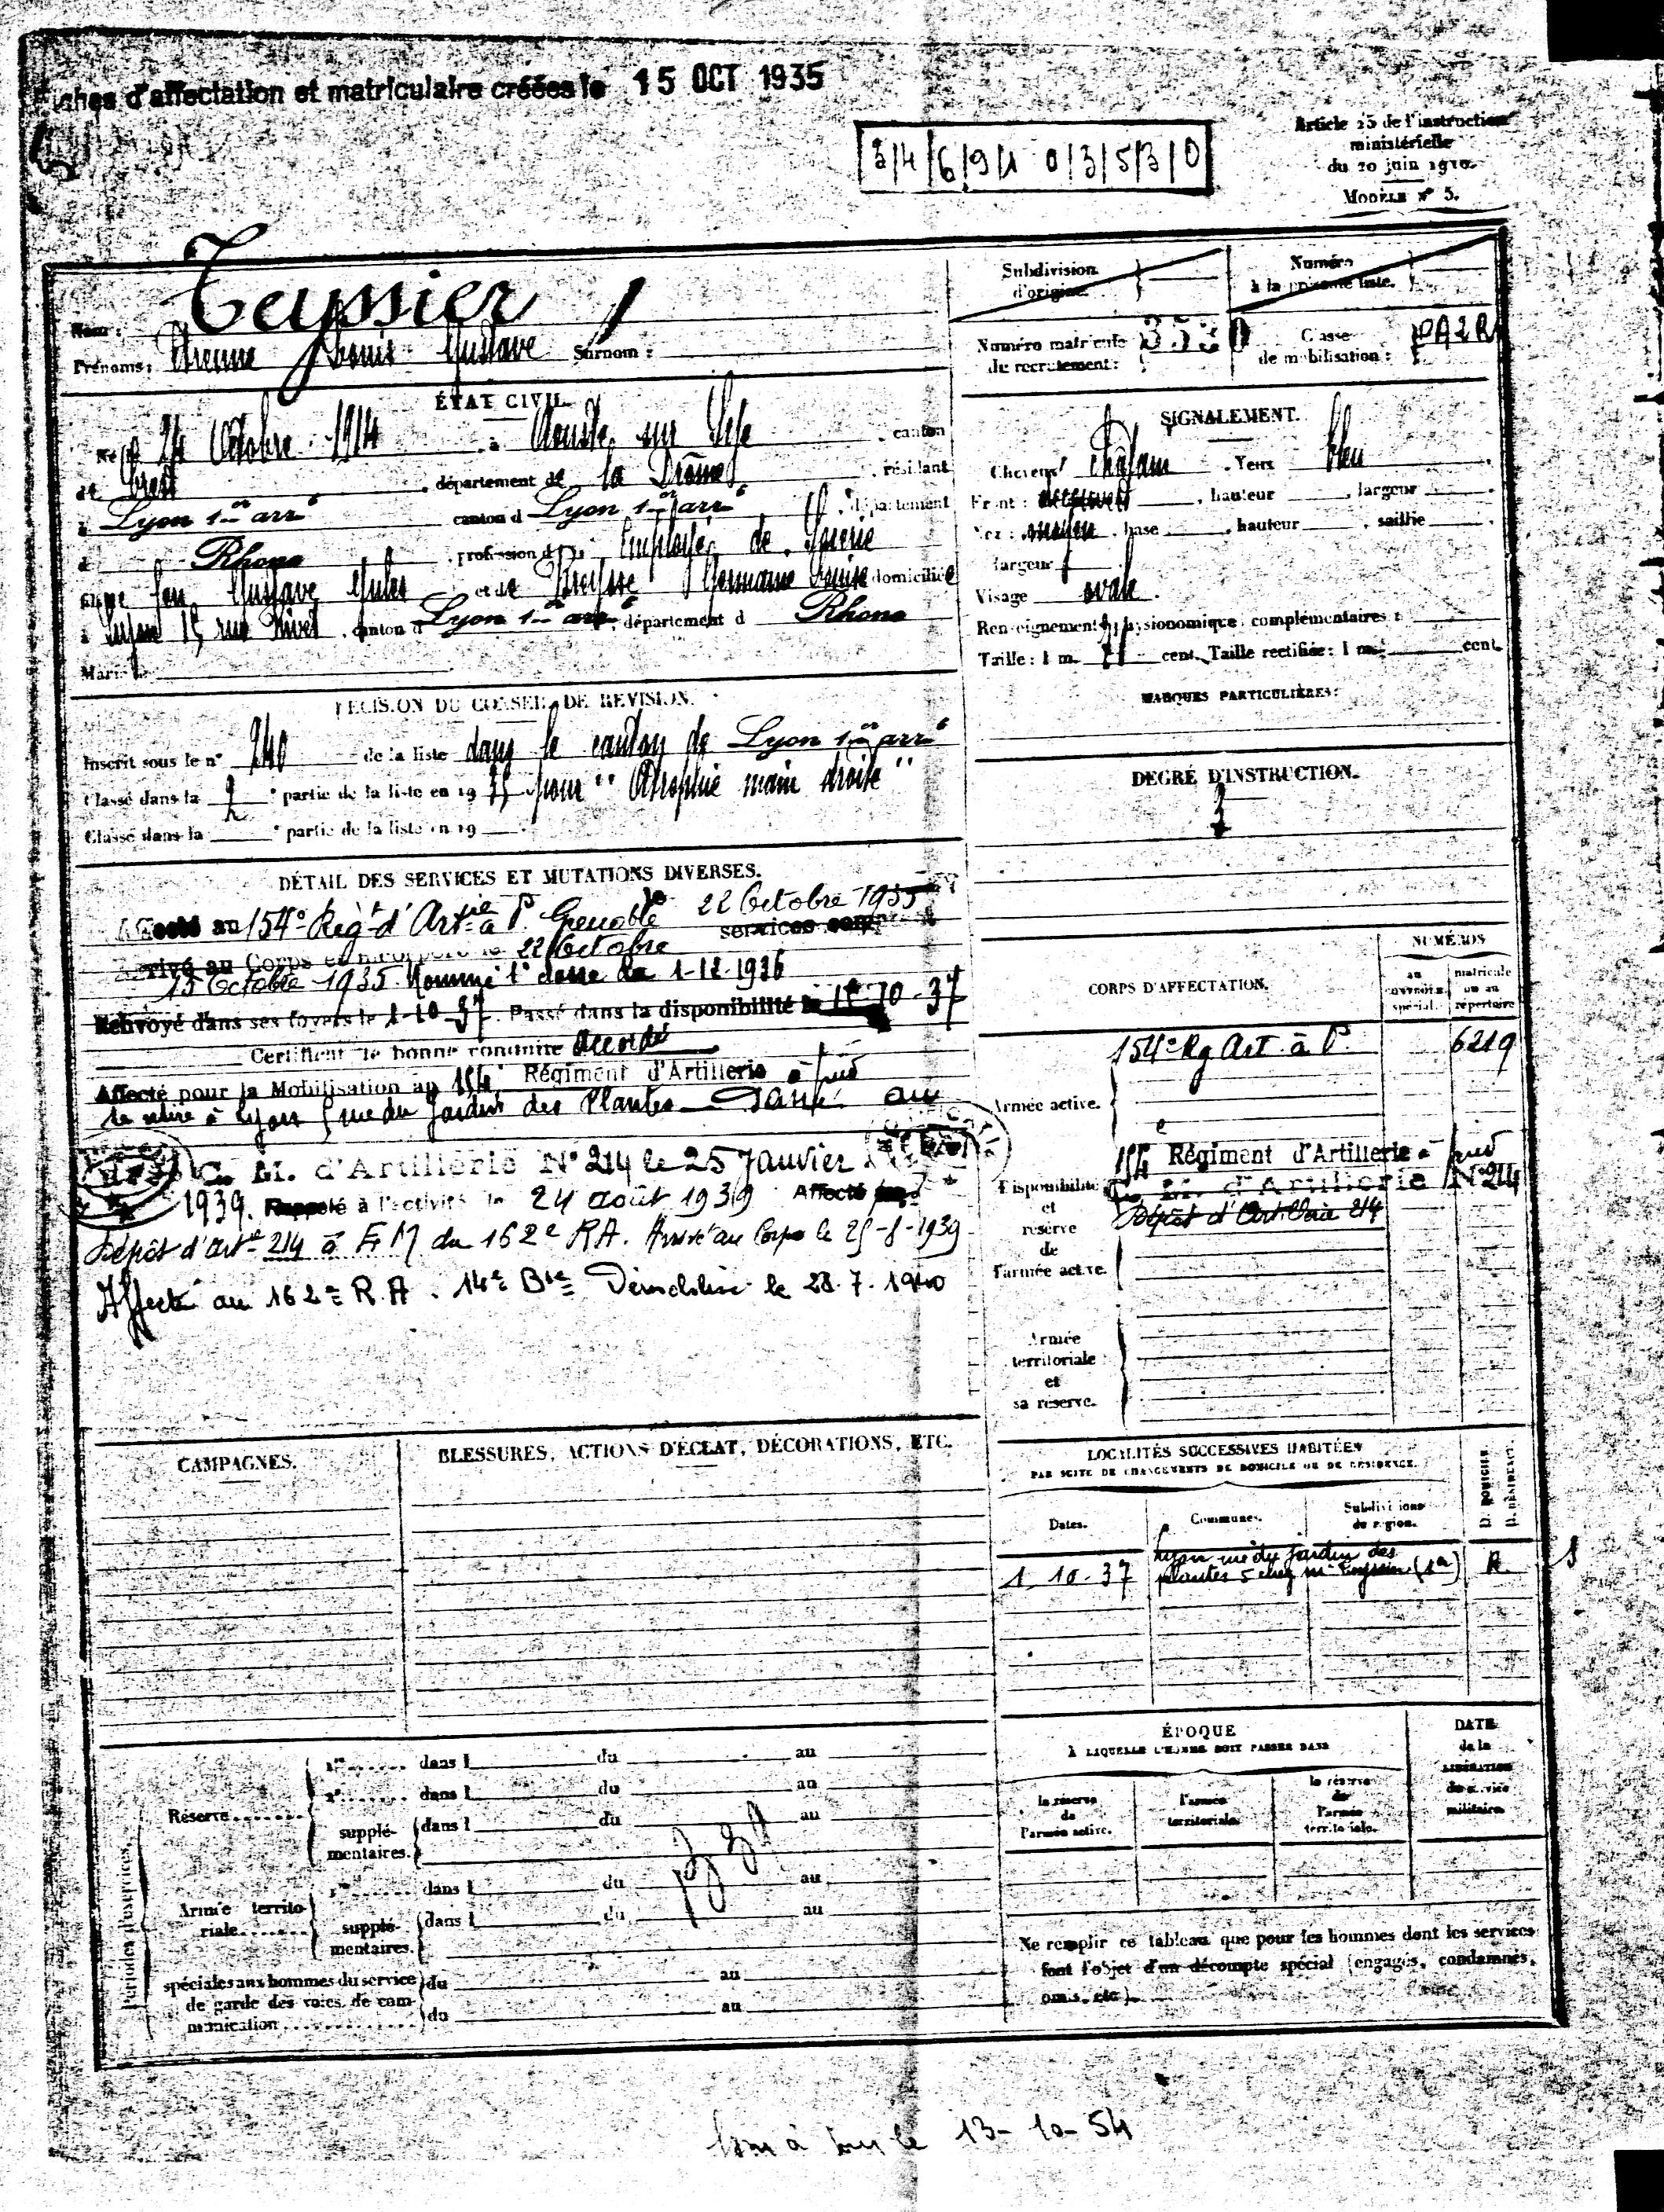 d'affectation et matriculaire créées le 15 OCT 1935
3 4 6 9 1 0 3 5 3 0
Article 25 de l'instruction
ministérielle
du 20 juin 1910.
MODÈLE N° 5.
Nom :
Prénoms : Etienne Louis Gustave Surnom :
Subdivision
d'origine.
Numéro
à la présente liste.
Numéro matricule
du recrutement :
Classe
de mobilisation :
ÉTAT CIVIL.
Né le 24 Octobre 1914 à Aouste sur Sye canton
de Crest, département de la Drôme, résidant
à Lyon 1er arrt canton d Lyon 1er arrt, département
d Rhône, profession d Employé de Soierie
fils de feu Gustave Jules et de Germaine Louise domiciliés
à Lyon 15 rue Rivet, canton d Lyon 1er arrt, département d Rhône
Marié le
SIGNALEMENT.
Cheveux châtain. Yeux bleu
Front :, hauteur, largeur
Nez : moyen, base, hauteur, saillie
largeur
Visage ovale.
Renseignements physionomiques complémentaires :
Taille : 1 m. 71 cent. Taille rectifiée : 1 m. cent.
MARQUES PARTICULIÈRES :
DÉCISION DU CONSEIL DE REVISION.
Inscrit sous le n° 240 de la liste dans le canton de Lyon 1er arrt
Classé dans la 2e partie de la liste en 19 35 pour "Atrophie main droite"
Classé dans la e partie de la liste en 19
DEGRÉ D'INSTRUCTION.
3
DÉTAIL DES SERVICES ET MUTATIONS DIVERSES.
Affecté au 154e Régt d'Artie à P. Grenoble 22 Octobre 1935
Arrivé au Corps et incorporé le 22 Octobre services
15 Octobre 1935. Nommé 1e classe le 1-12-1936
Renvoyé dans ses foyers le 1-10-37. Passé dans la disponibilité le 1er-10-37
Certificat de bonne conduite Accordé
Affecté pour la Mobilisation au 154e Régiment d'Artillerie à pied
se retire à Lyon 5 rue du Jardin des Plantes Passé au
C. M. d'Artillerie N° 214 le 25 Janvier
1939. Rappelé à l'activité le 24 août 1939 Affecté
Dépôt d'Artie 214 à EM du 162e RA. Arrivé au Corps le 25-8-1939
Affecté au 162e R.A. 14e Bie Démobilisé le 28.7.1940
CORPS D'AFFECTATION.
NUMÉROS
au
contrôle
spécial.
matricule
ou au
répertoire
Armée active.
154e Rg Art. à P. 6219
Disponibilité
et
réserve
de
l'armée active.
154e Régiment d'Artillerie à pied
C. M. d'Artillerie N° 214
Dépôt d'Artillerie 214
Armée
territoriale
et
sa réserve.
CAMPAGNES.
BLESSURES, ACTIONS D'ÉCLAT, DÉCORATIONS, ETC.
LOCALITÉS SUCCESSIVES HABITÉES
PAR SUITE DE CHANGEMENTS DE DOMICILE OU DE RÉSIDENCE.
Dates.
Communes.
Subdivisions
de région.
D. DOMICILE
R. RÉSIDENCE.
1.10.37 Lyon rue du Jardin des
plantes 5 chez (1er) R.
Périodes d'exercices.
Réserve
1re dans l du au
2e dans l du au
supplé-
mentaires.
dans l du au
Armée territo-
riale
1re dans l du au
supplé-
mentaires.
dans l du au
spéciales aux hommes du service
de garde des voies de com-
munication
du au
du au
ÉPOQUE
À LAQUELLE L'HOMME DOIT PASSER DANS
la réserve
de
l'armée active.
l'armée
territoriale.
la réserve
de
l'armée
territoriale.
DATE
de la
LIBÉRATION
du service
militaire.
Ne remplir ce tableau que pour les hommes dont les services
font l'objet d'un décompte spécial (engagés, condamnés,
omis, etc.).
le 13-10-54